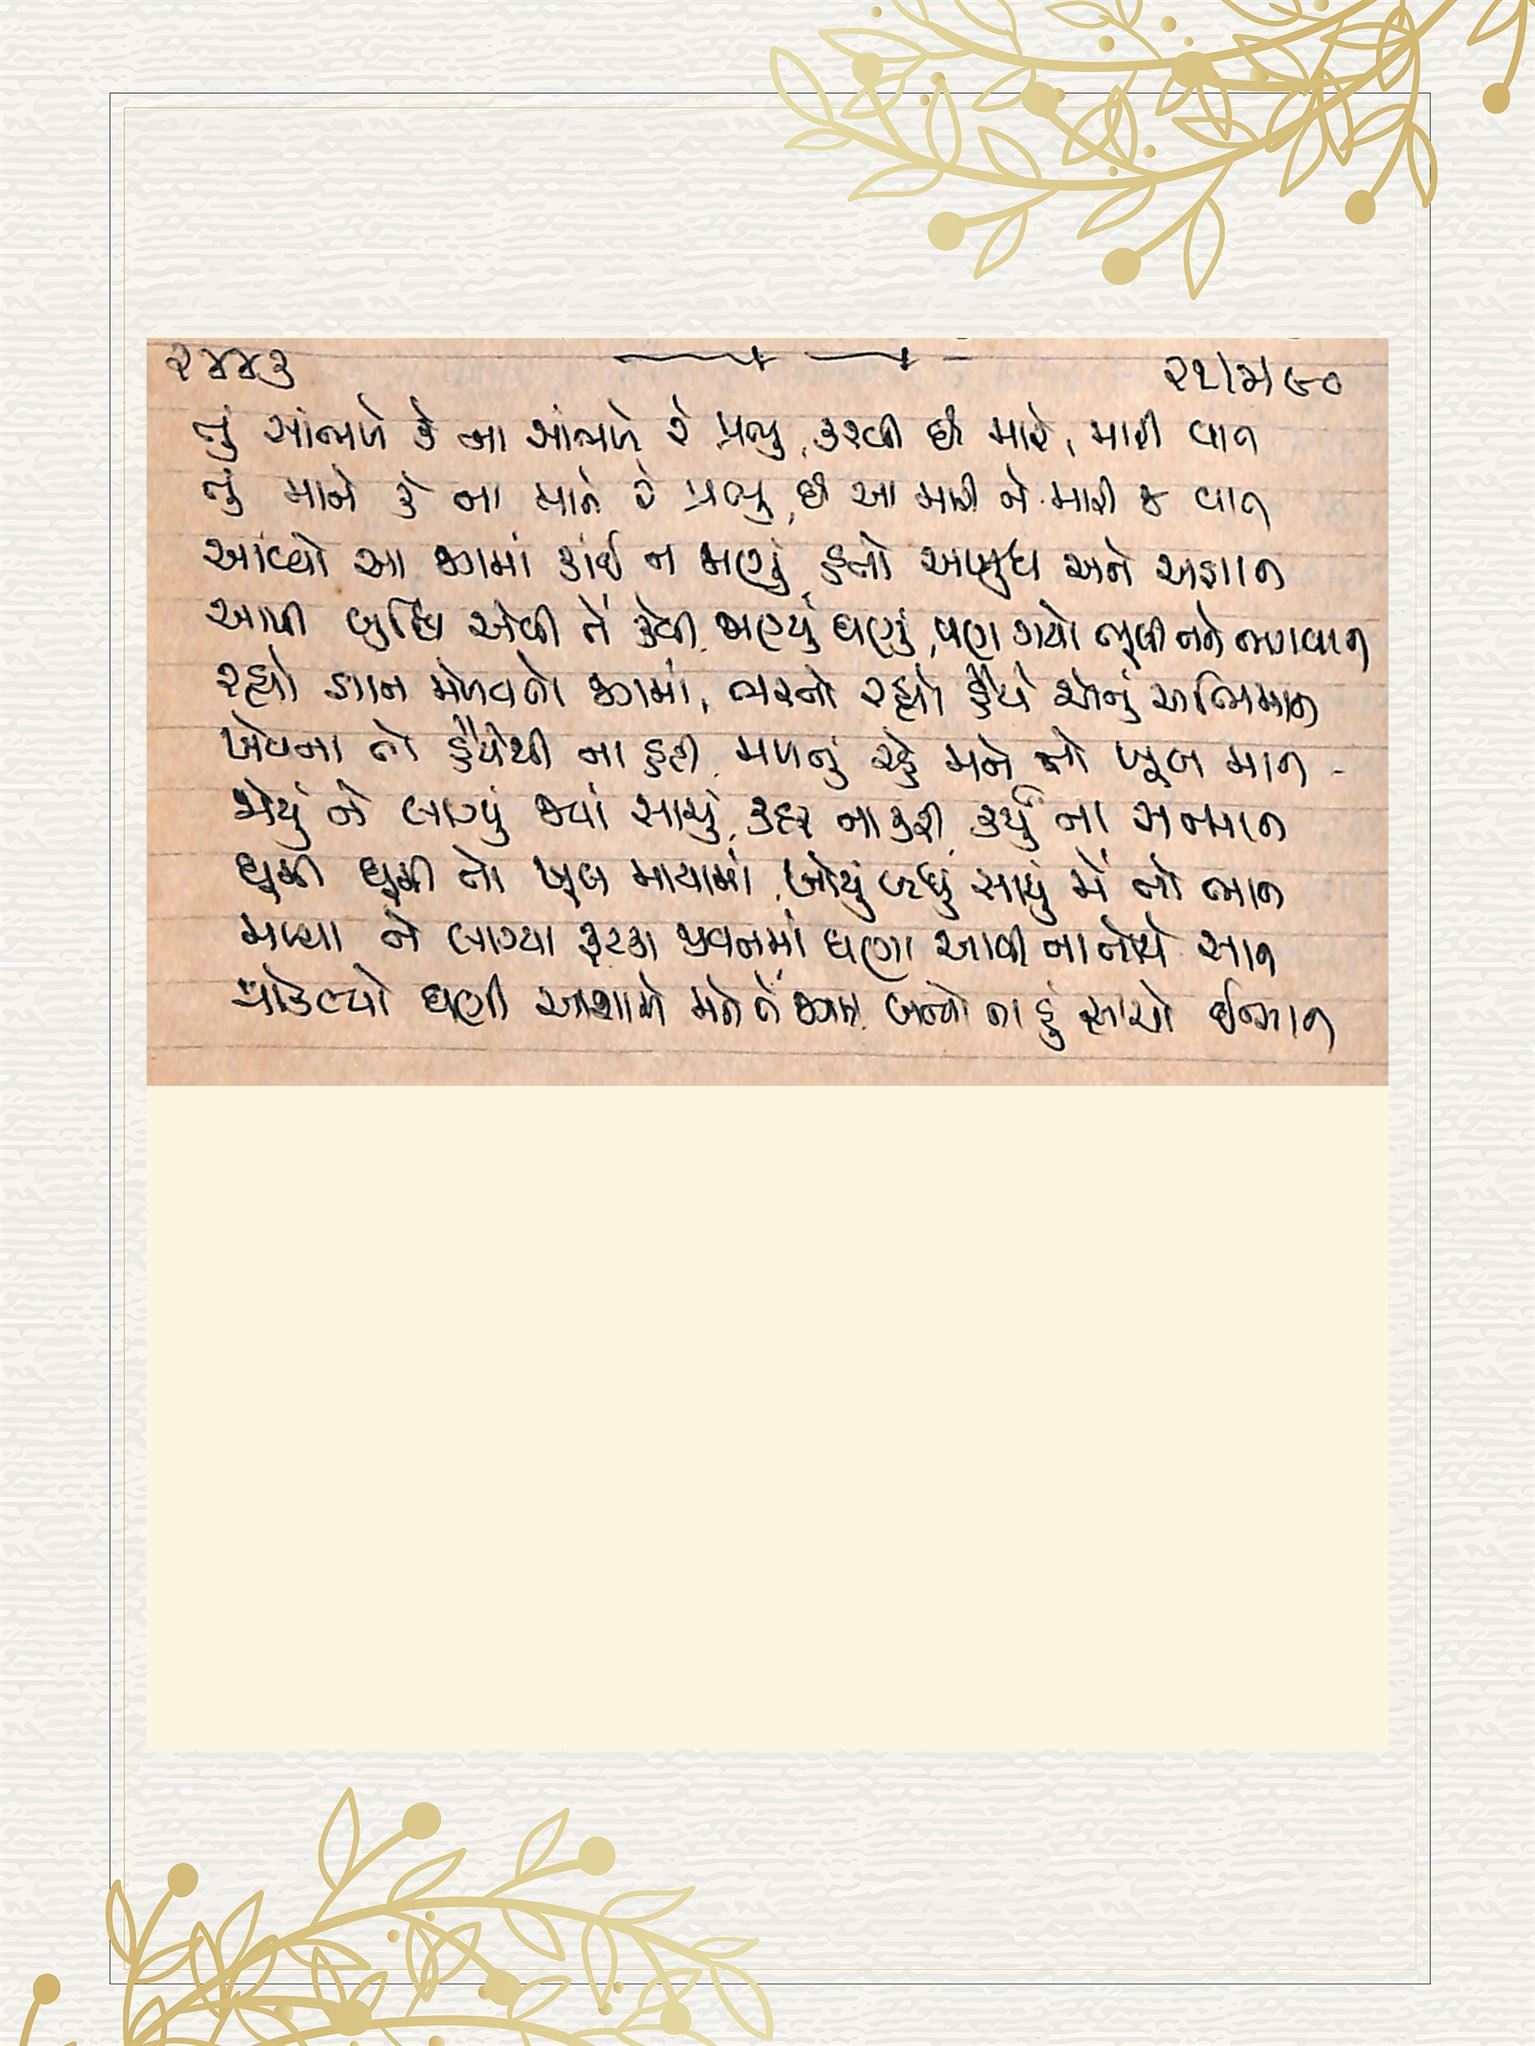 ૨૪૪૩ ૨૧/૪/૯૦
તું સાંભળે કે ના સાંભળે રે પ્રભુ, કરવી છે મારે, મારી વાત
તું માને કે ના માને રે પ્રભુ, છે આ મારી ને મારી જ વાત
આવ્યો આ જગમાં કાંઈ ન જાણું, હતો અબુધ અને અજ્ઞાન
આપી બુદ્ધિ એવી તેં કેવી, જાણ્યું ઘણું, પણ ગયો ભૂલી તને ભગવાન
રહ્યો જ્ઞાન મેળવતો જગમાં, ભરતો રહ્યો હૈયે એનું અભિમાન
ખેવના તો હૈયેથી ના હટી, મળતું રહે મને તો ખૂબ માન
જોયું ને લાગ્યું જ્યાં સાચું, કદર ના કરી, કર્યું ના સન્માન
ઘૂમી ઘૂમી તો ખૂબ માયામાં, ખોયું બધું સાચું મેં તો ભાન
મળ્યા ને લાગ્યા ફટકા જીવનમાં ઘણા આવી ના તોયે સાન
મોકલ્યો ઘણી આશાએ મને તેં જગમાં, બન્યો ના હું સાચો ઈન્સાન